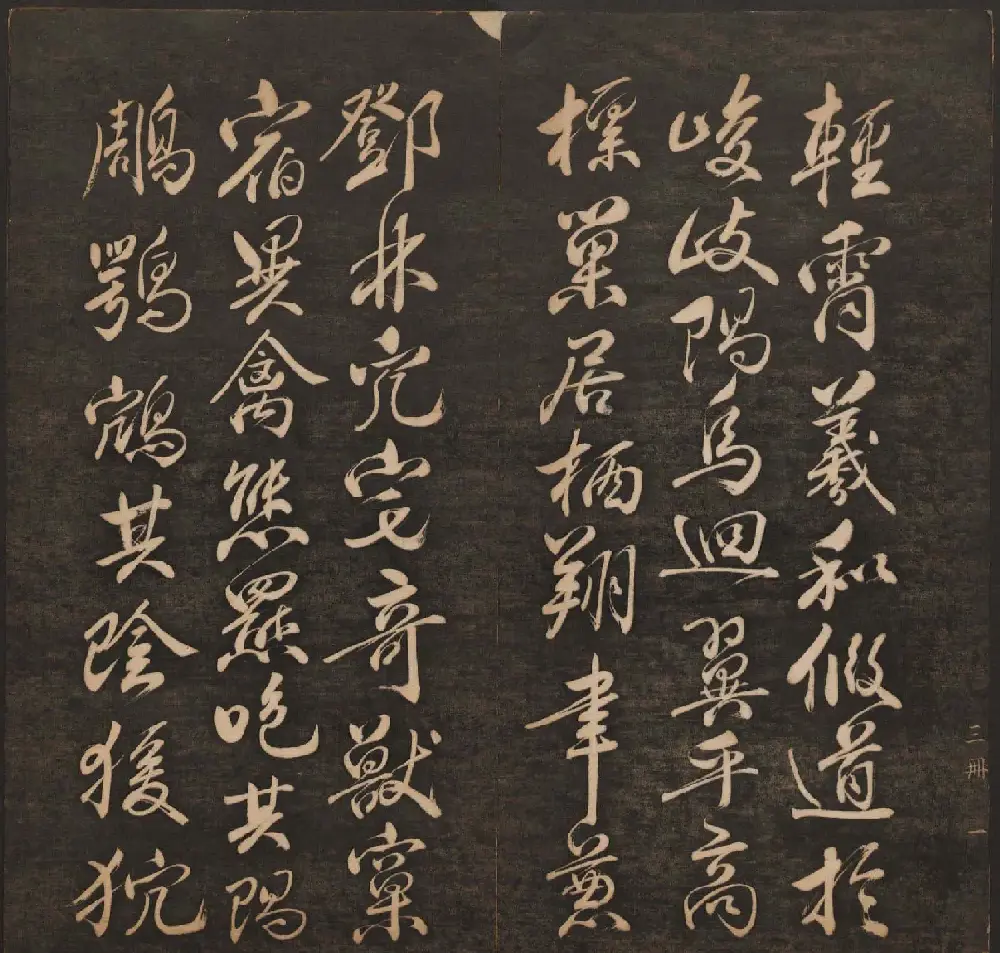 輕霄羲和假道於
峻岐陽烏迴翼乎高
標巢居栖翔聿兼
鄧林穴宅奇獸窠
宿異禽熊羆咆其陽
鵰鶚鴥其陰猨狖
三冊 一